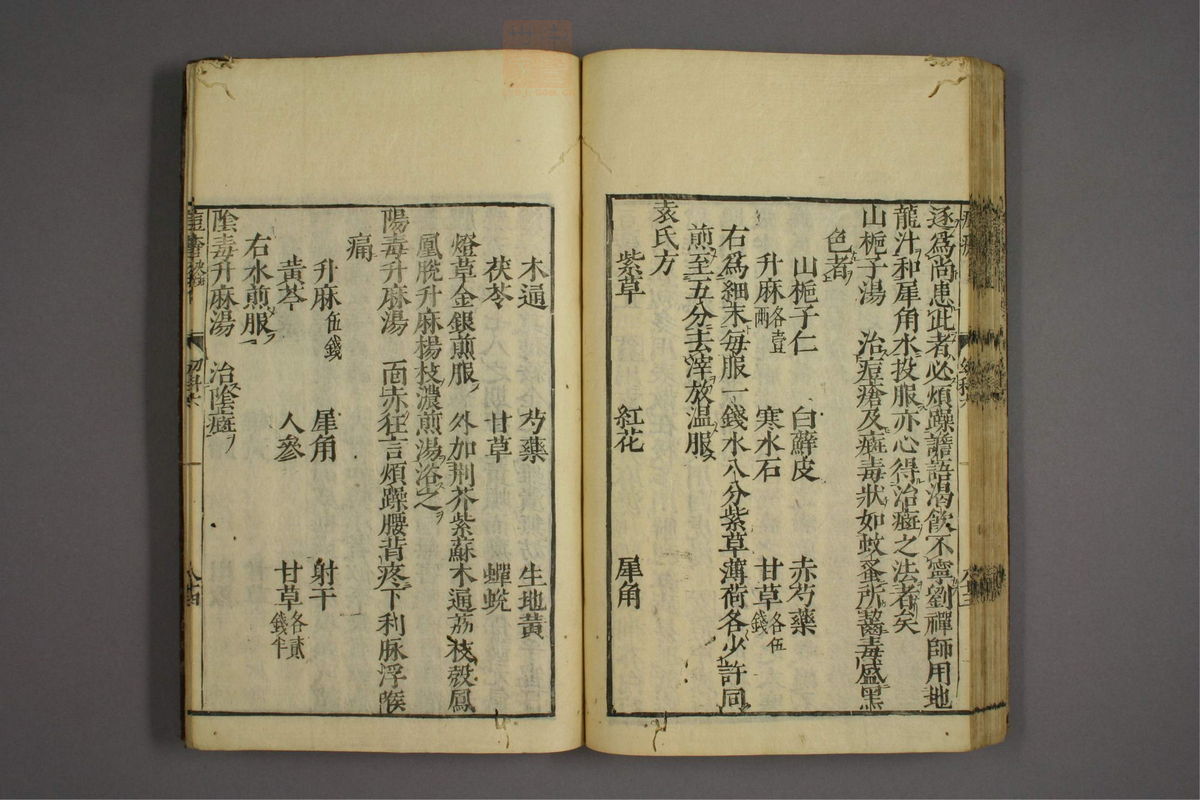 逐為尚患此者必煩躁譫語渴飲不寧劉禪師用地
龍汁和犀角水投服亦心得治癍之法者矣
山梔子湯 治痘瘡及癍毒狀如蚊蚤所䘌毒盛黑
色者
山梔子仁 白蘚皮 赤芍藥
升麻各壹兩 寒水石 甘草各伍錢
右為細末每服一錢水八分紫草薄荷各少許同
煎至五分去滓放温服
袁氏方
紫草 紅花 犀角
木通 芍藥 生地黃
茯苓 甘草 蟬蛻
燈草金銀煎服 外加荆芥紫蘇木通荔枝殼鳳
凰脫升麻楊枝濃煎湯浴之
陽毒升麻湯 面赤狂言煩躁腰背疼下利脉浮喉
痛
升麻伍錢 犀角 射干
黃芩 人參 甘草各貳錢半
右水煎服
陰毒升麻湯 治陰癍